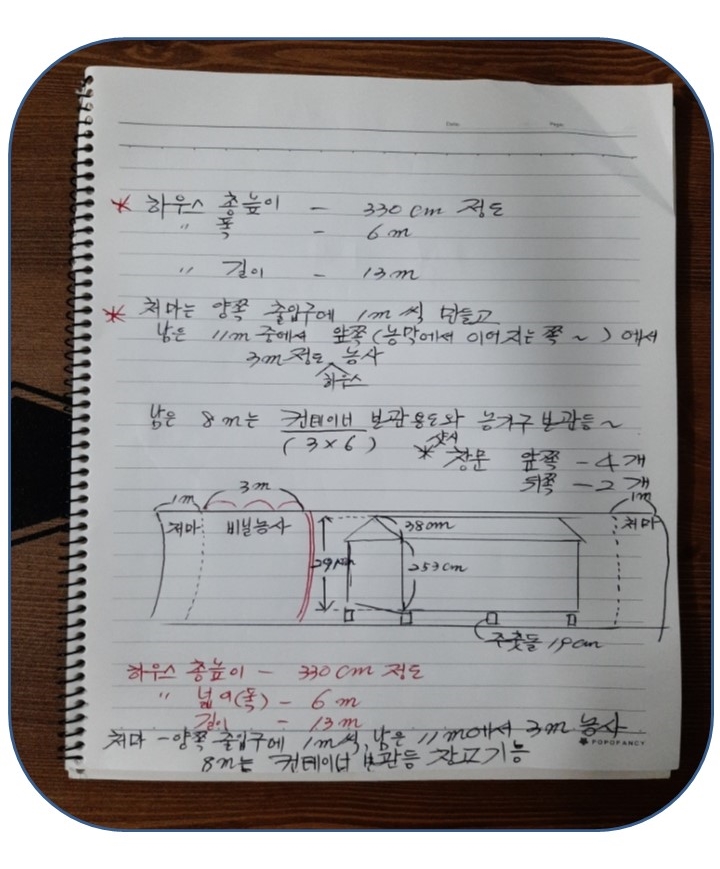 Date. Page.
* 하우스 총높이 - 330 cm 정도
" 폭 - 6 m
" 길이 - 13 m
* 처마는 양쪽 출입구에 1m 씩 만들고
남은 11m 중에서 앞쪽 (농막에서 이어지는 쪽 ~ ) 에서
3m 정도 농사
하우스
남은 8m는 컨테이너 보관용도와 농기구 보관등 ~
(3×6)
* 창문 앞쪽 - 4 개
뒤쪽 - 2 개
1m 3m 1m
처마 비닐농사 38cm 처마
253cm
주춧돌 19cm
하우스 총높이 - 330 cm 정도
" 넓이(폭) - 6 m
길이 - 13 m
처마 - 양쪽 출입구에 1m씩, 남은 11m에서 3m 농사
POPOFANCY
8m는 컨테이너 보관등 창고기능